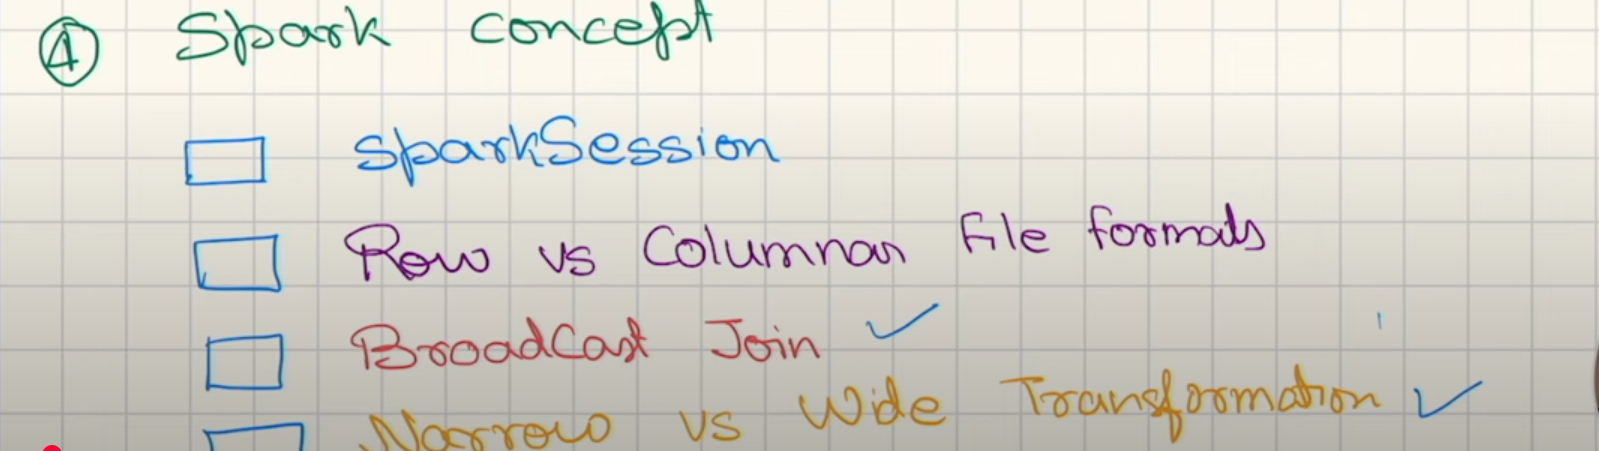 ④ Spark concept
sparkSession
Row vs Columnar File formats
BroadCast Join ✓
Narrow vs Wide Transformation ✓